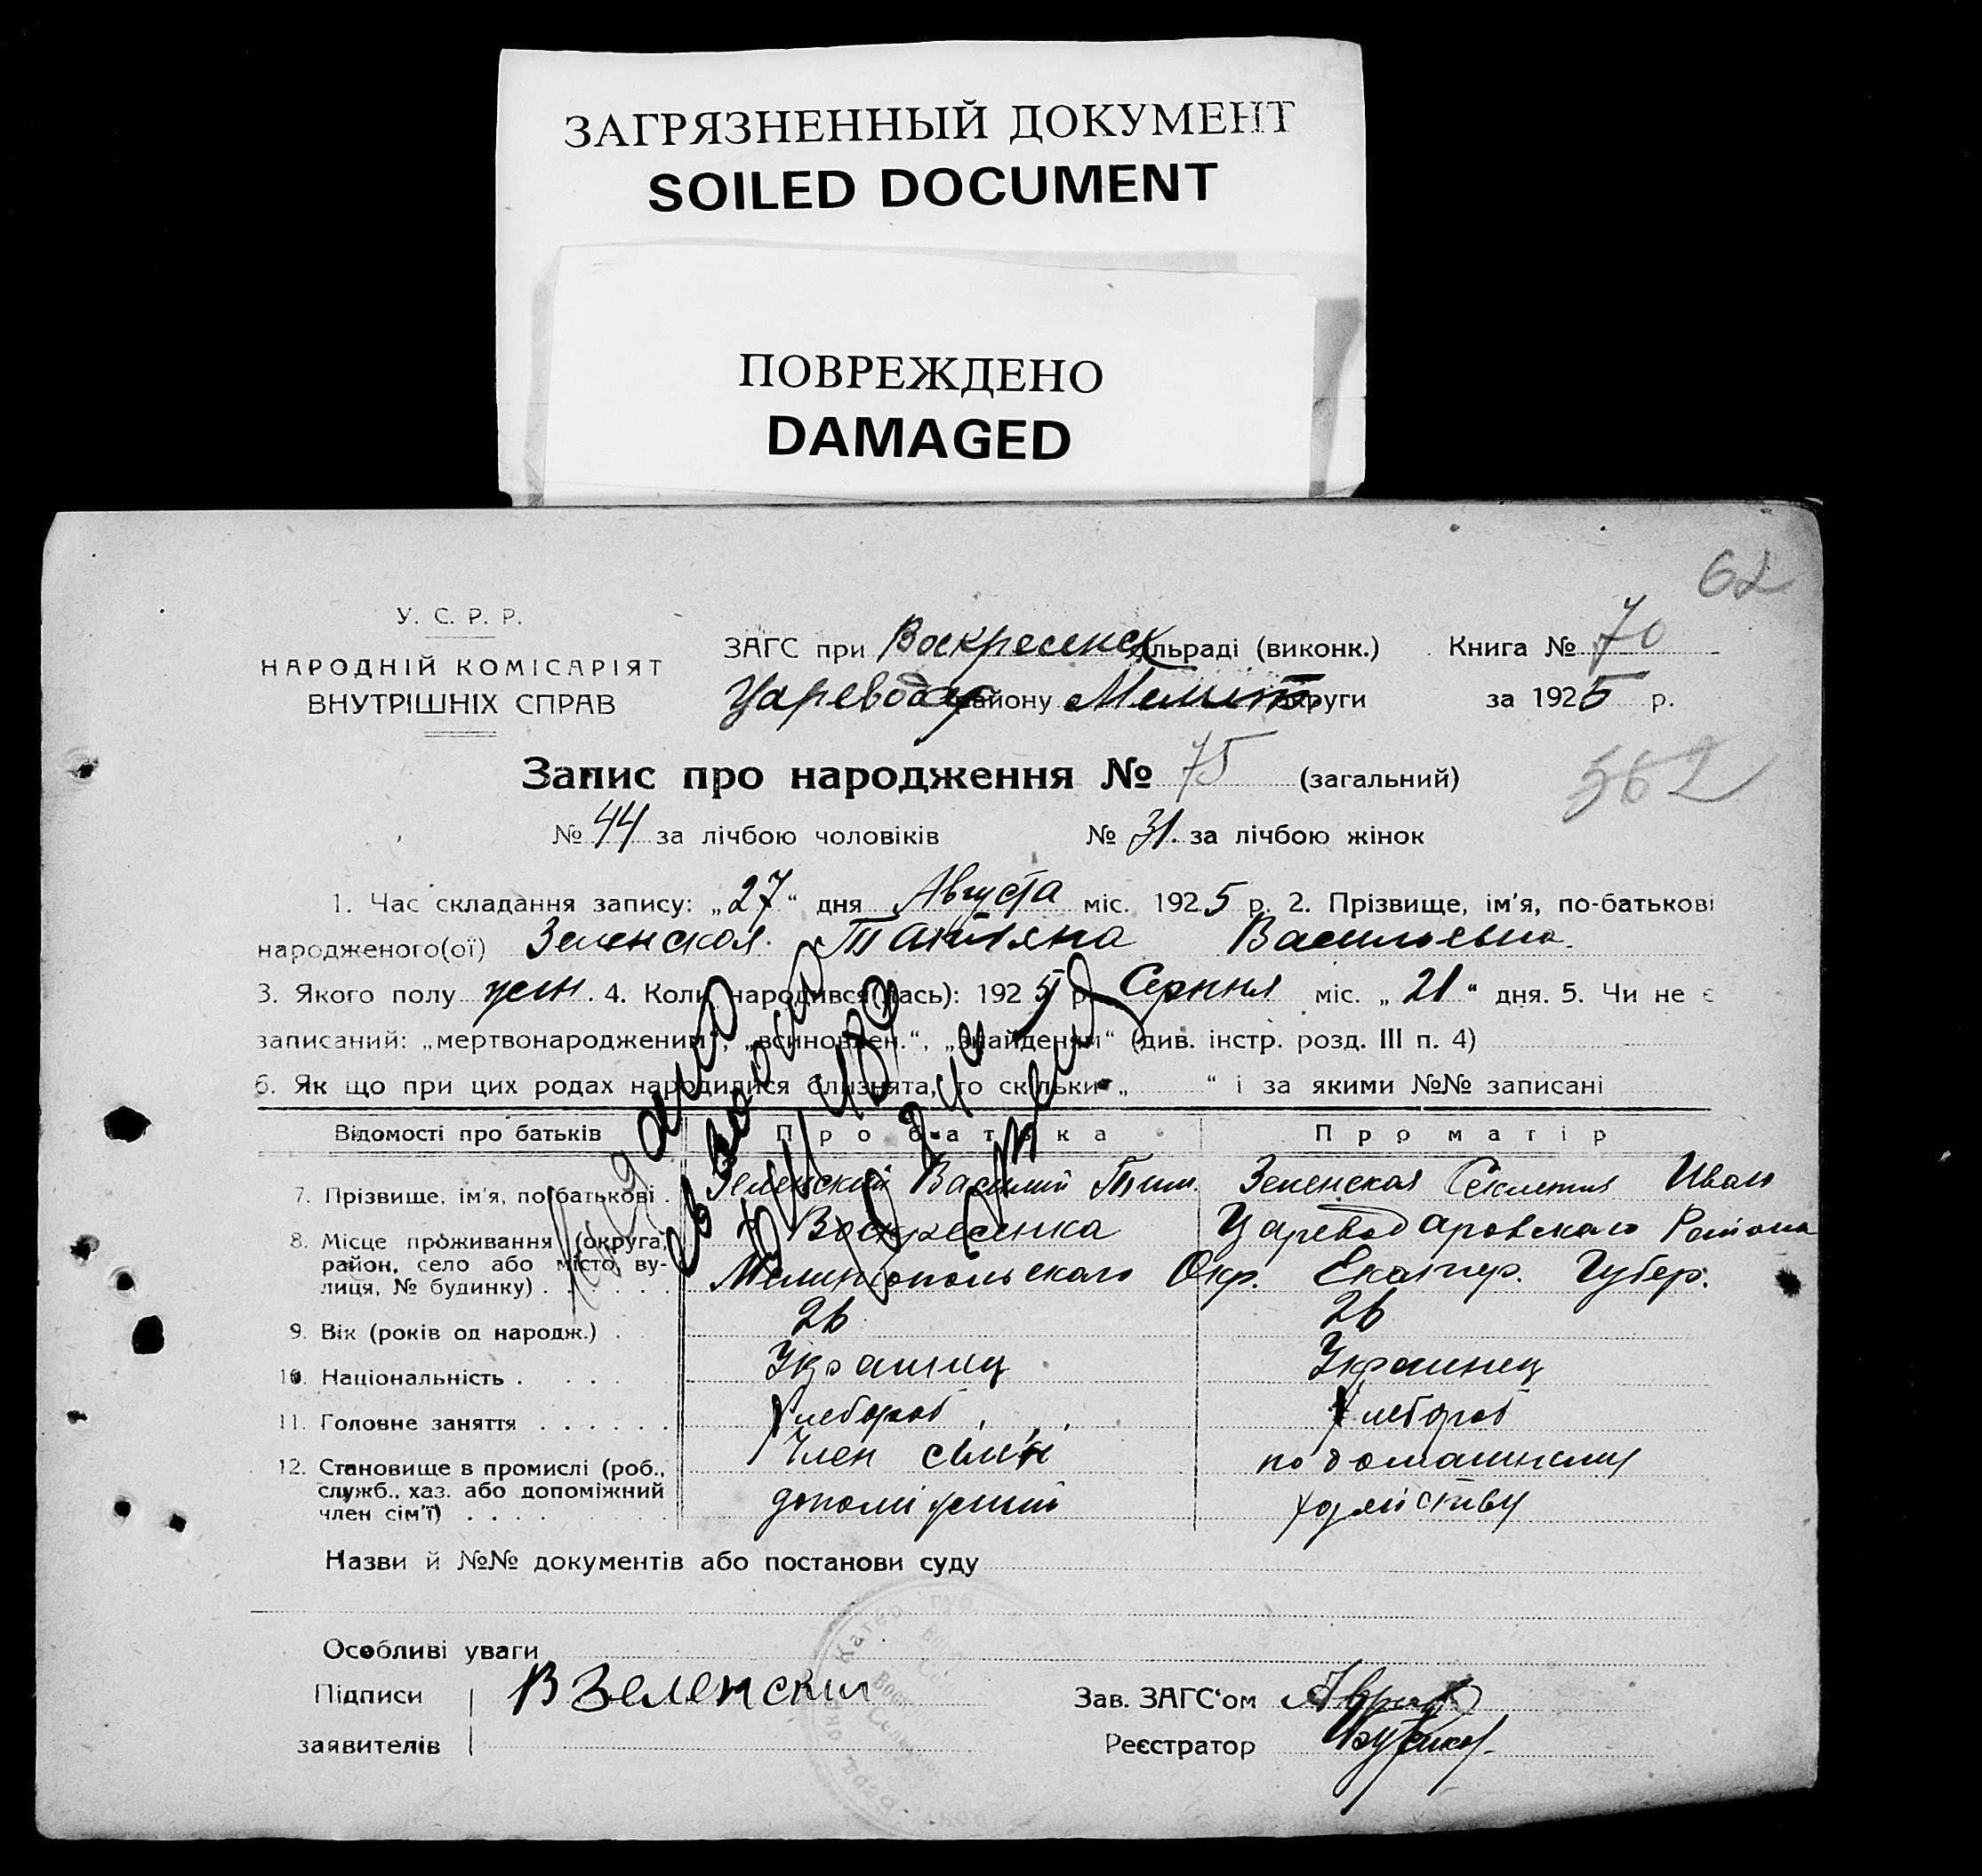 ЗАГРЯЗНЕННЫЙ ДОКУМЕНТ
SOILED DOCUMENT
ПОВРЕЖДЕНО
DAMAGED
62
У. С. Р. Р.
НАРОДНІЙ КОМІСАРІЯТ
ВНУТРІШНІХ СПРАВ
ЗАГС при Воскресенск льраді (виконк.) Книга № 70
Царевода району Мелит округи за 1925 р.
Запис про народження № 75 (загальний)
562
№ 44 за лічбою чоловіків № 31. за лічбою жінок
1. Час складання запису: „27“ дня Августа міс. 1925 р. 2. Прізвище, ім'я, по-батькові
народженого(ої) Зеленская Татьяна Васильевна.
3. Якого полу жен. 4. Коли народився(лась): 1925 р. Серпня міс. „21“ дня. 5. Чи не є
записаний: „мертвонародженим“, „всиновлен.“, „знайденим“ (див. інстр. розд. III п. 4)
6. Як що при цих родах народилися близнята, то скільки „ “ і за якими №№ записані
Відомості про батьків Про батька Про матір
7. Прізвище, ім'я, по батькові . Зеленский Василий Тим. Зеленская Секлетия Иван
8. Місце проживання (округа, район, село або місто, ву-лиця, № будинку) . . . . . . Воскресенка Цареводаровскаго Района
Мелитопольскаго Окр. Екатер. Губер.
9. Вік (років од народж.) . 26 26
10. Національність . . . . Украинец Украинец
11. Головне заняття . . . . . . Хлебороб Хлебороб
12. Становище в промислі (роб., Член сімї по домашнему
служб., хаз. або допоміжний допоміжний хозяйству
член сім'ї) . . . .
Назви й №№ документів або постанови суду
Особливі уваги
Підписи В Зеленский Зав. ЗАГС'ом
заявителів Реєстратор